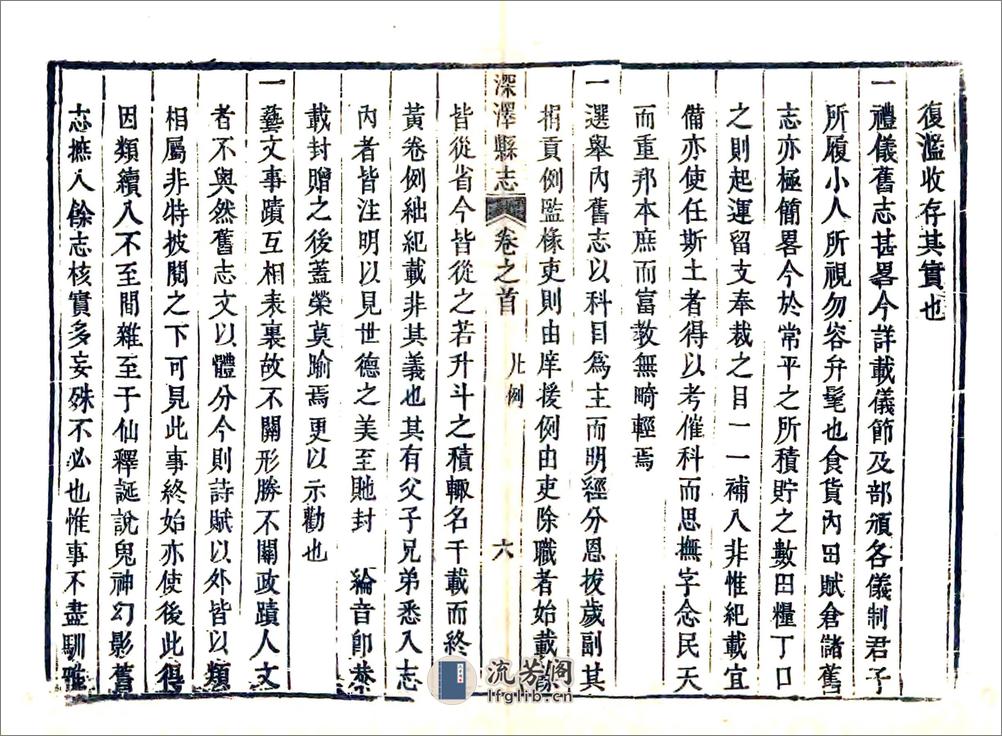 復濫收存其實也
一禮儀舊志甚畧今詳載儀節及部頒各儀制君子
所履小人所視勿容弁髦也食貨內田賦倉儲舊
志亦極簡畧今於常平之所積貯之數田糧丁口
之則起運留支奉裁之目一一補入非惟紀載宜
備亦使任斯土者得以考催科而思撫字念民天
而重邦本庶而富教無畸輕焉
一選舉內舊志以科目為主而明經分恩拔歲副其
捐貢例監椽吏則由庠援例由吏除職者始載餘
深澤縣志 卷之首 凡例 六
皆從省今皆從之若升斗之積輙名千載而終
黃卷例絀紀載非其義也其有父子兄弟悉入志
內者皆注明以見世德之美至貤封 綸音卽
載封贈之後蓋榮莫踰焉更以示勸也
一藝文事蹟互相表裏故不關形勝不關政蹟人文
者不與然舊志文以體分今則詩賦以外皆以類
相屬非特披閱之下可見此事終始亦使後此得
因類續入不至間雜至于仙釋誕說鬼神幻影舊
志摭入餘志核實多妄殊不必也惟事不盡馴雅
流芳阁
lfglib.cn